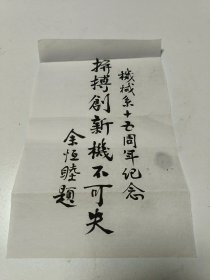 機械系十五周年纪念
拚搏創新機不可失
余恒睦題